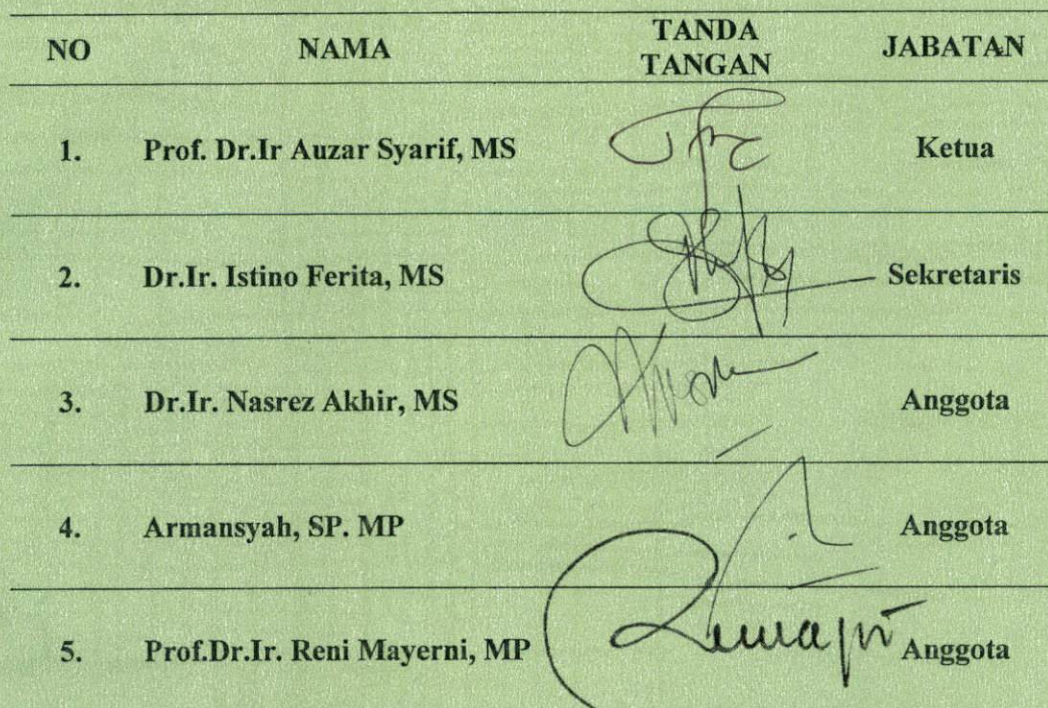 NO NAMA TANDA TANGAN JABATAN
1. Prof. Dr.Ir Auzar Syarif, MS Ketua
2. Dr.Ir. Istino Ferita, MS Sekretaris
3. Dr.Ir. Nasrez Akhir, MS Anggota
4. Armansyah, SP. MP Anggota
5. Prof.Dr.Ir. Reni Mayerni, MP Anggota